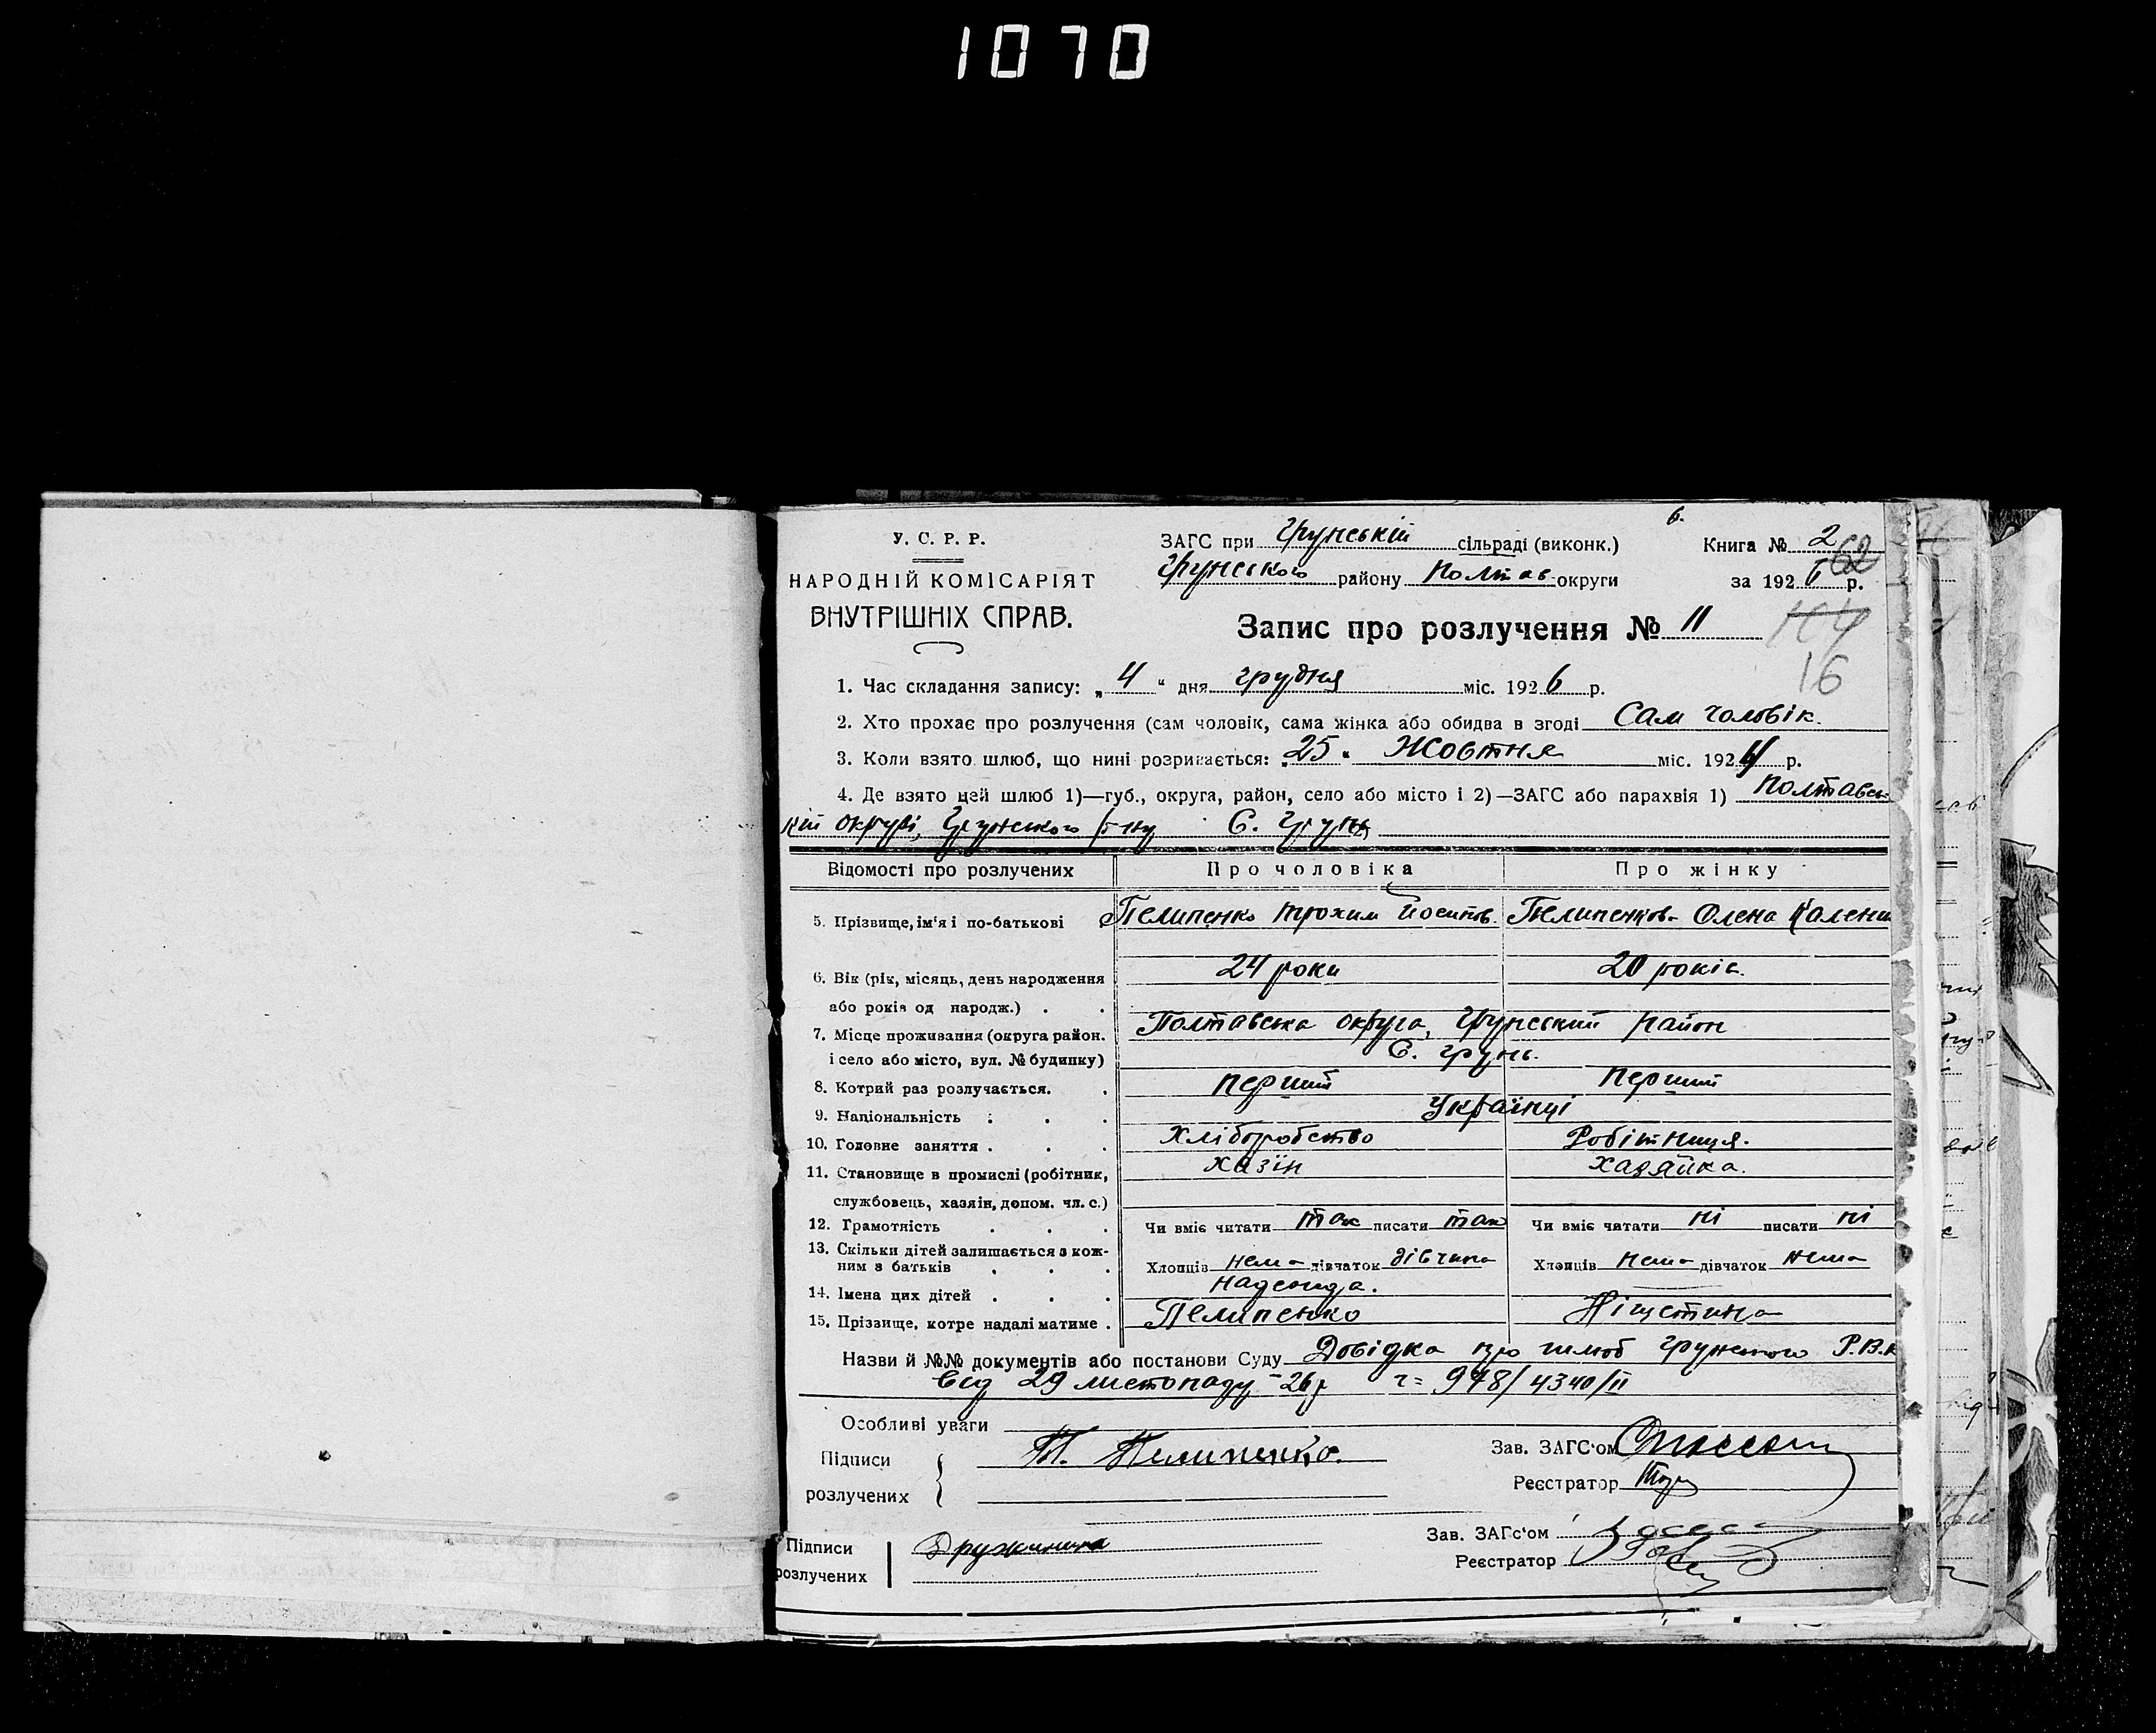 1070
6.
У. С. Р. Р.
НАРОДНІЙ КОМІСАРІЯТ
ВНУТРІШНІХ СПРАВ.
ЗАГС при Грунській сільраді (виконк.)
Грунського району Полтав. округи
Книга № 2
62
за 192 р.
Запис про розлучення № 11
16
1. Час складання запису: „4“ дня грудня міс. 1926 р.
2. Хто прохає про розлучення (сам чоловік, сама жінка або обидва в згоді Сам чоловік.
3. Коли взято шлюб, що нині розривається: „25“ Жовтня міс. 1924 р.
4. Де взято цей шлюб 1)—губ., округа, район, село або місто і 2)—ЗАГС або парахвія 1) Полтавсь-
кій округі, Грунського р-ну С. Грунь
Відомості про розлучених Про чоловіка Про жінку
5. Прізвище, ім'я і по-батькові Пелипенко Трохим Йосипов. Пелипенков- Олена Каленик
6. Вік (рік, місяць, день народження 24 роки 20 років.
або років од народж.) . .
7. Місце проживання (округа район. Полтавська округа, Грунський район
і село або місто, вул. № будинку) С. Грунь.
8. Котрий раз розлучається. . перший перший
9. Національність . . . Українці
10. Головне заняття . . . Хліборобство Робітниця.
11. Становище в промислі (робітник, хазїн хазяйка.
службовець, хазяін, допом. чл. с.)
12. Грамотність . . . Чи вміє читати так писати так Чи вміє читати ні писати ні
13. Скільки дітей залишається з кож-
ним з батьків . . . Хлопців нема дівчаток дівчина Хлопців нема дівчаток нема
14. Імена цих дітей . . . Надежда.
15. Прізвище, котре надалі матиме . Пелипенко
Назви й №№ документів або постанови Суду Довідка про шлюб Грунського Р.В.К
від 29 листопаду -26р ч= 948/4340/II
Особливі уваги
Підписи
розлучених
Т. Пелипенко.
Зав. ЗАГС'ом
Реєстратор
Підписи
розлучених
Дружинина
Зав. ЗАГс'ом
Реєстратор